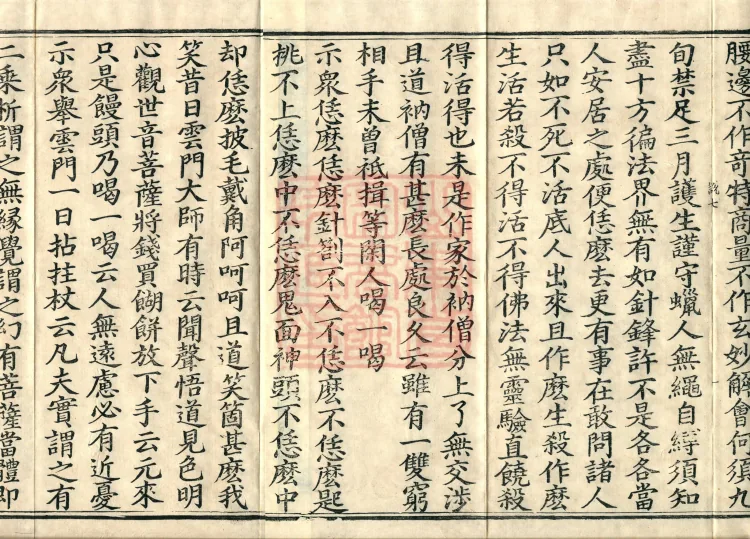 腰邊不作奇特商量不作玄妙解會何須九
旬禁足三月護生謹守蠟人無繩自縛須知
盡十方徧法界無有如針鋒許不是各各當
人安居之處便恁麽去更有事在敢問諸人
只如不死不活底人出來且作麽生殺作麽
生活若殺不得活不得佛法無靈驗直饒殺
得活得也未是作家於衲僧分上了無交涉
且道衲僧有甚麽長處良久云雖有一雙窮
相手未曾祇揖等閑人喝一喝
示衆恁麽恁麽針劄不入不恁麽不恁麽匙
挑不上恁麽中不恁麽鬼面神頭不恁麽中
却恁麽披毛戴角阿呵呵且道笑箇甚麽我
笑昔日雲門大師有時云聞聲悟道見色明
心觀世音菩薩將錢買餬餅放下手云元來
只是饅頭乃喝一喝云人無遠慮必有近憂
示衆舉雲門一日拈拄杖云凡夫實謂之有
二乘析謂之無緣覺謂之幻有菩薩當體即